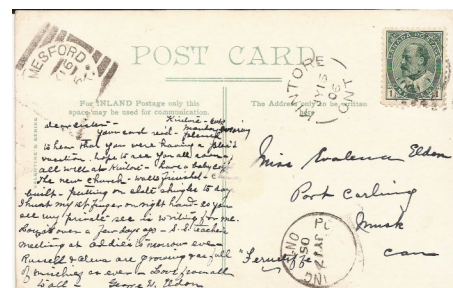 MESFORD
POST CARD
KINTORE
ONT
CANADA POSTAGE
For INLAND Postage only this
space may be used for communication.
The Address only to be written
here
Kintore - Ont
Monday evening
dear sister -
Your card rec'd - pleased
to hear that you were having a pleas't
vacation. hope to see you all soon -
all well at Kintore - have a baby
The new church - walls finished -
built - putting on slate shingles to day
I hurt my 1st finger on right hand so you
see my private sec. is writing for me.
over a few days ago - S.S. teacher
meeting at Addie's to-morrow even
Russell & are growing as full
of mischief as ever - Love from all
to all - George H. Eldon
Miss Evalena Eldon
Port Carling
Musk
Can
"Ferncliffe"